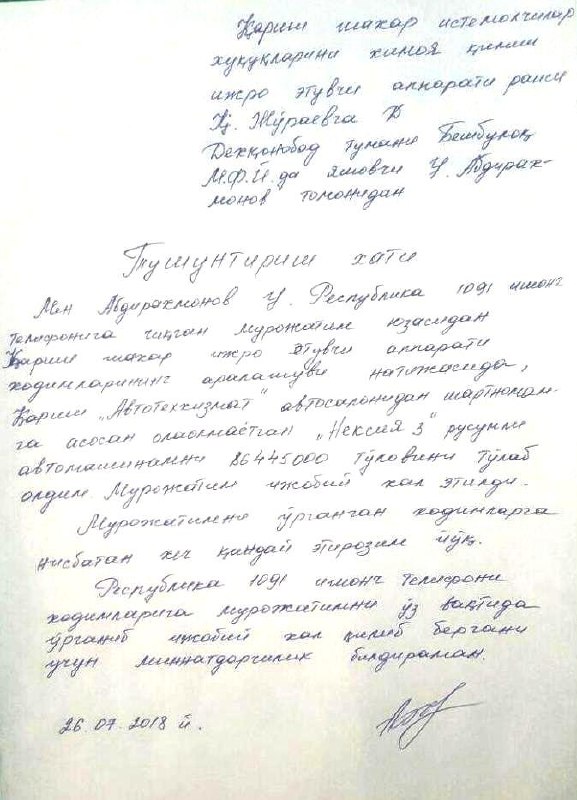 Қарши шахар истемолчилар
хуқуқларини химоя қилиш
ижро этувчи аппарати раиси
Қ. Жўраевга Ф
Дехқонобод тумани Бешбулоқ
М.Ф.Й.да яшовчи У. Абдирах-
монов томонидан
Тушунтириш хати
Мен Абдирахмонов У. Республика 1091 ишонч
телефонига чиққан мурожатим юзасидан
Қарши шахар ижро этувчи аппарати
ходимларининг аралашуви натижасида,
Қарши „Автотеххизмат" автосалонидан шартномам-
га асосан олаолмаётган „Нексия 3" русумли
автомашинамни 86445000 тўловини тўлаб
олдим. Мурожатим ижобий хал этилди.
Мурожатимни ўрганган ходимларга
нисбатан хеч қандай этирозим йўқ.
Республика 1091 ишонч телефони
ходимларига мурожатимни ўз вақтида
ўрганиб ижобий хал қилиб бергани
учун миннатдорчилик билдираман.
26.07.2018 й.